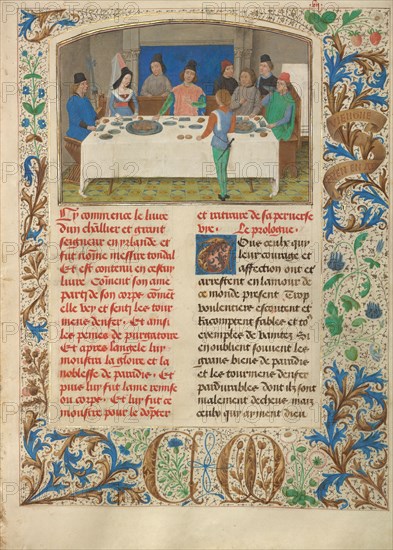 Cy commence le livre
dun chllier et grant
seigneur en yrlande et
fut nomme messire tondal
Et est contenu en cestuy
livre Coment son ame
party de son corps comet
elle vey et senty les tour
mens denfer Et aussi
les peines de purgatoire
Et apres langele luy
moustra la gloire et la
noblesse de paradis Et
puis luy fut lame remise
ou corps Et luy fut ce
moustre pour le doubter
et retraire de sa perverse
vye Le prologue
Tous ceulx quy
leur courage et
affection ont et
arrestent en lamour de
ce monde present Trop
voulentiers escoutent et
Racomptent fables et
exemples de vanitez Si
en oublient souvent les
grans biens de paradis
et les tourmens denfer
pardurables dont ilz sont
malement deceus mais
ceulx quy ayment dieu